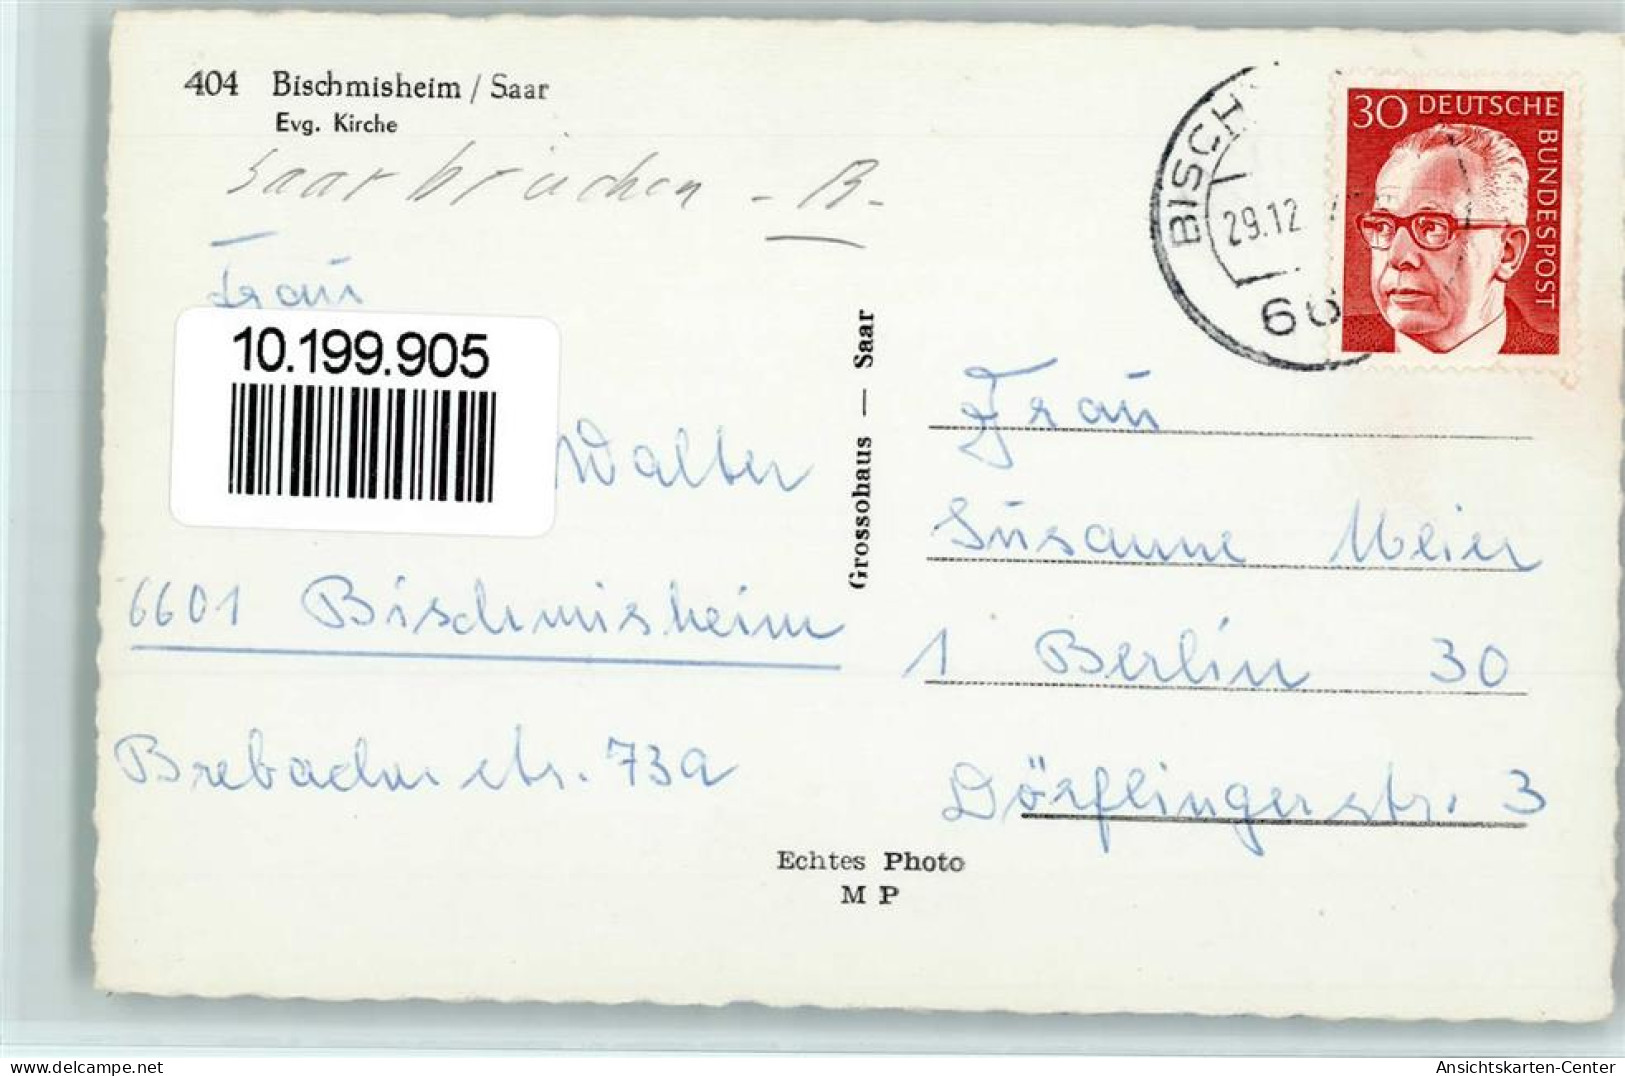 404 Bischmisheim / Saar
Evg. Kirche
Saarbrücken - B -
Frau
10.199.905
Walter
6601 Bischmisheim
Brebacherstr. 73a
Grossohaus — Saar
Echtes Photo
M P
BISCH
29.12
66
30 DEUTSCHE BUNDESPOST
Frau
Susanne Meier
1 Berlin 30
Dörflingerstr. 3
www.delcampe.net
Ansichtskarten-Center